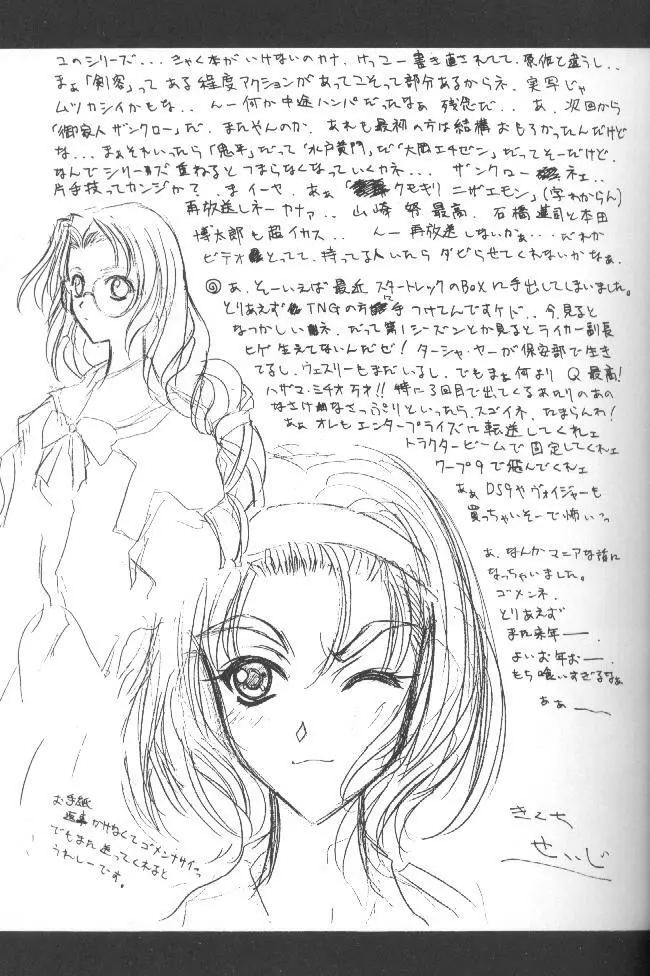 このシリーズ... きゃく本がいけないのカナ。けっこー書き直されてて、原作と違うし..
まぁ「剣客」って ある程度アクションがあってこそって部分あるからネ. 実写じゃ
ムツカシイかもな.. んー何か中途ハンパだったなぁ 残念だ.. あ. 次回から
「御家人ザンクロー」だ. またやんのか. あれも最初の方は結構 おもろかったんだけど
な... まぁそれいったら「鬼平」だって「水戸黄門」だ「大岡エチゼン」だってそーだけど.
なんでシリーズ重ねると つまらなくなっていくカネ... ザンクロー ネェ..
片手技ってカンジか?. ま イーヤ. あぁ「クモキリ ニザエモン」(字わからん)
再放送しネーカナァ.. 山崎努 最高. 石橋蓮司と本田
博太郎も超イカス.. んー 再放送しないかぁ... だれか
ビデオとってて. 持ってる人いたら ダビらせてくれないかなぁ.
◎ あ. そーいえば 最近 スタートレックのBOXに手出してしまいました。
とりあえず TNGの方に手つけてんですケド.. 今. 見ると
なつかしいネ. だって第1シーズンとか見るとライカー副長
ヒゲ生えてないんだぜ! ターシャ・ヤーが保安部で生き
てるし. ウェスリーもまだいるし. でもまぁ何より Q最高!
ハザマ・ミチオ万才!! 特に3回目で出てくるあたりのあの
なさけなさっぷりといったら. スゴイネ. たまらんわ!
あぁ オレもエンタープライズに転送してくれェ
トラクタービームで固定してくれェ
ワープ9で飛んでくれェ
あぁ DS9やヴォイジャーも
買っちゃいそーで怖いっ
あ. なんかマニアな話に
なっちゃいました。
ゴメンネ.
とりあえず
また来年ー.
よいお年おー.
もち喰いすぎるなぁ
あぁー
お手紙
返事かけなくてゴメンナサイっ
でもまた送ってくれると
うれしーです。
きくち
せいじ